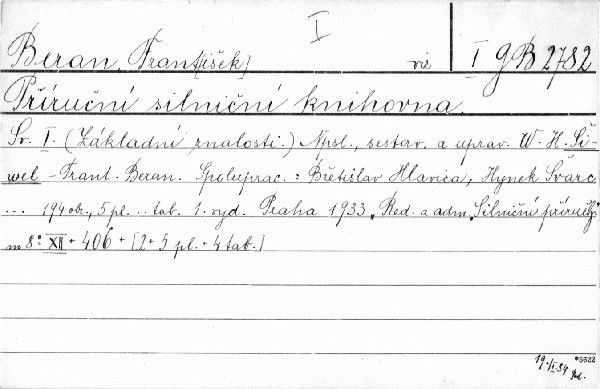 I
Beran, Frant[išek] viz I gB 2782
Příruční silniční knihovna.
Sv. I. (Základní znalosti.) Npsl., sestav. a uprav. W. H. Ši-
wel - Frant. Beran. Spoluprac.: Břetislav Hlavica, Hynek Švarc
... 194 obr., 5 pl. .. tab. 1. vyd. Praha 1933, Red. a adm. „Silniční příručky"
m 8° XII + 406 + [2 + 5 pl. + 4 tab.]
19/I 34
*5622